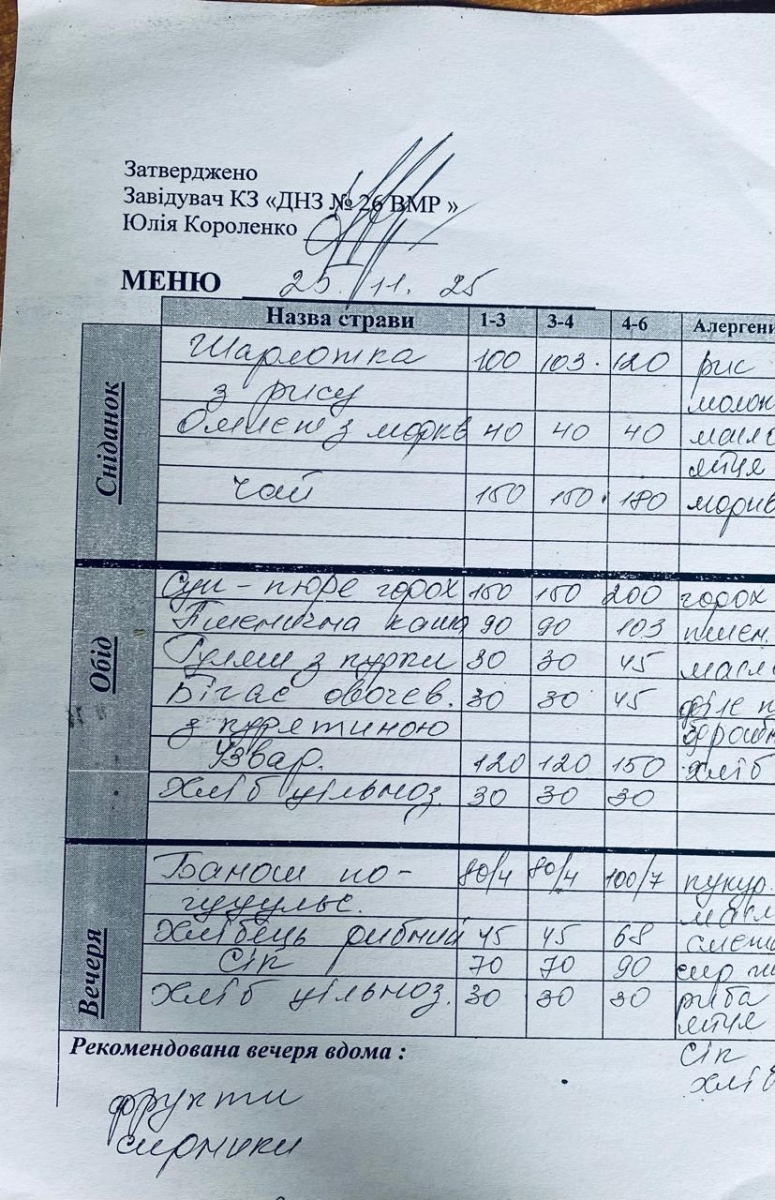 Затверджено
Завідувач КЗ «ДНЗ № 26 ВМР »
Юлія Короленко
МЕНЮ 25. 11. 25
Назва страви 1-3 3-4 4-6 Алергени
Сніданок
Шарлотка 100 103. 120 рис
з рису молок
Омлет з моркв 40 40 40 масло
яйця
Чай 150 150. 180 моркв
Обід
Суп - пюре горох 150 150 200 горох
Пшенична каша 90 90 103 пшен.
Гуляш з курки 30 30 45 масло
Бігас овочев. 30 30 45 філе к
з курятиною борошн
Узвар. 120 120 150 хліб
Хліб цільноз. 30 30 30
Вечеря
Банош по- 80/4 80/4 100/7 кукур.
гуцульс. масл
Хлібець рибний 45 45 68 смета
Сік 70 70 90 сир
Хліб цільноз. 30 30 30 риба
яйця
Рекомендована вечеря вдома : Сік
хліб
фрукти
сирники